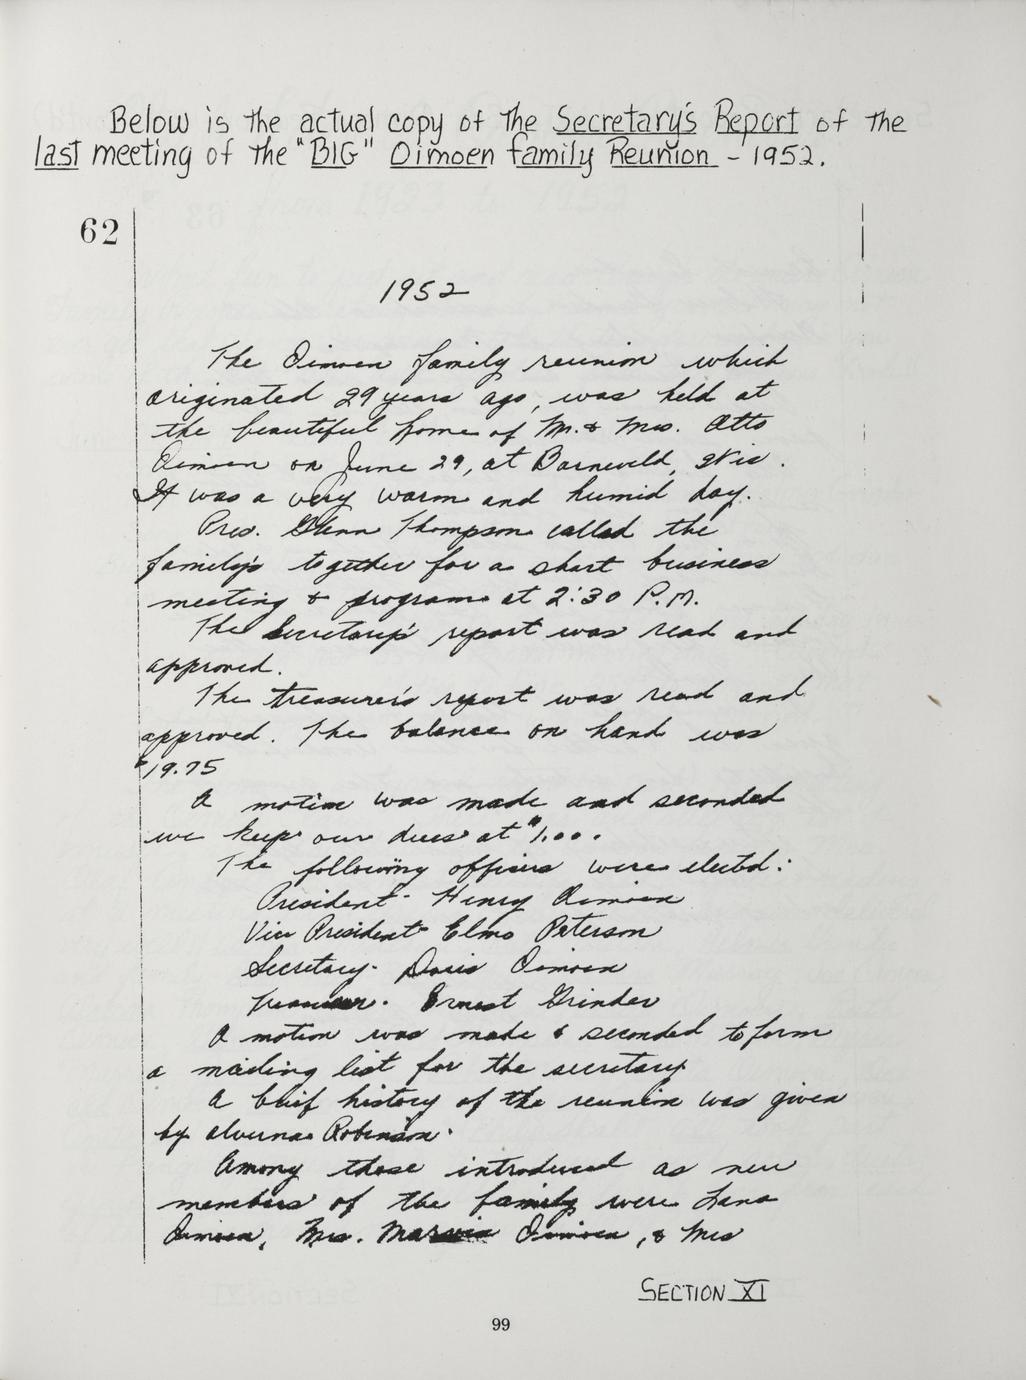 Below is the actual copy of the Secretary's Report of the
last meeting of the "BIG" Oimoen family Reunion - 1952.
62
1952
The Oimoen family reunion which
originated 29 years ago, was held at
the beautiful home of Mr. & Mrs. Otto
Oimoen on June 29, at Barneveld, Wis.
It was a very warm and humid day.
Pres. Glenn Thompson called the
family's together for a short business
meeting & program at 2:30 P.M.
The Secretary's report was read and
approved.
The treasurer's report was read and
approved. The balance on hand was
$19.75
A motion was made and seconded
we keep our dues at $1.00.
The following officers were electd:
President - Henry Oimoen
Vice President - Elmo Peterson
Secretary - Doris Oimoen
Treasurer - Ernest Grinder
A motion was made & seconded to form
a mailing list for the secretary
A brief history of the reunion was given
by Alverna Robinson.
Among those introduced as new
members of the family were Lana
Oimoen, Mrs. Marvin Oimoen, & Mrs
SECTION XI
99